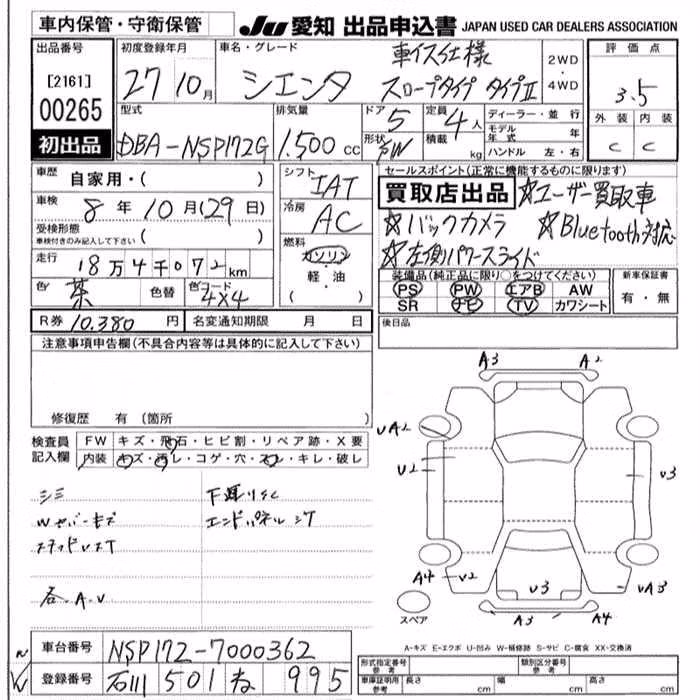 車内保管・守衛保管
JU 愛知 出品申込書 JAPAN USED CAR DEALERS ASSOCIATION
出品番号
[2161]
00265
初出品
初度登録年月
27 10月
車名・グレード
シエンタ
車イス仕様
スロープタイプ タイプII
2WD
・
4WD
評価点
3.5
外装 内装
C C
型式
DBA-NSP172G
排気量
1.500 cc
ドア
5
形状
定員
4人
積載
kg
ディーラー・並行
モデル年式 年
ハンドル 左・右
車歴 自家用・( )
車検
8年10月(29日)
受検形態
車検付きのみ記入して下さい ( )
走行 18万4千072km
色 茶 色替 色コード 4X4
シフト
IAT
冷房
AC
燃料
ガソリン
・
軽・油
( )
セールスポイント(正常に機能するものに限ります)
買取店出品 ☆ユーザー買取車
☆バックカメラ ☆Bluetooth対応
☆左側パワースライド
装備品(純正品に限り○をつけてください)
PS PW エアB AW
SR ナビ TV カワシート
新車保証書
有・無
R券 10.380円 名変通知期限 月 日
後日品
注意事項申告欄(不具合内容等は具体的に記入して下さい)
修復歴 有 (箇所 )
検査員
記入欄
FW キズ・飛石・ヒビ割・リペア跡・X要
内装 キズ・汚レ・コゲ・穴・スレ・キレ・破レ
シミ
エンドパネル
各.A.U
A3 A2
UA2
U2
U3
A4 U2
U3
UA3
A3 A4
スペア
A-キズ E-エクボ U-凹み W-補修跡 S-サビ C-腐食 XX-交換済
車台番号 NSP172-7000362
登録番号 石川 501 ね 995
形式指定番号
参考
類別区分番号
参考
車庫証明用
参考
長さ cm 幅 cm 高さ cm